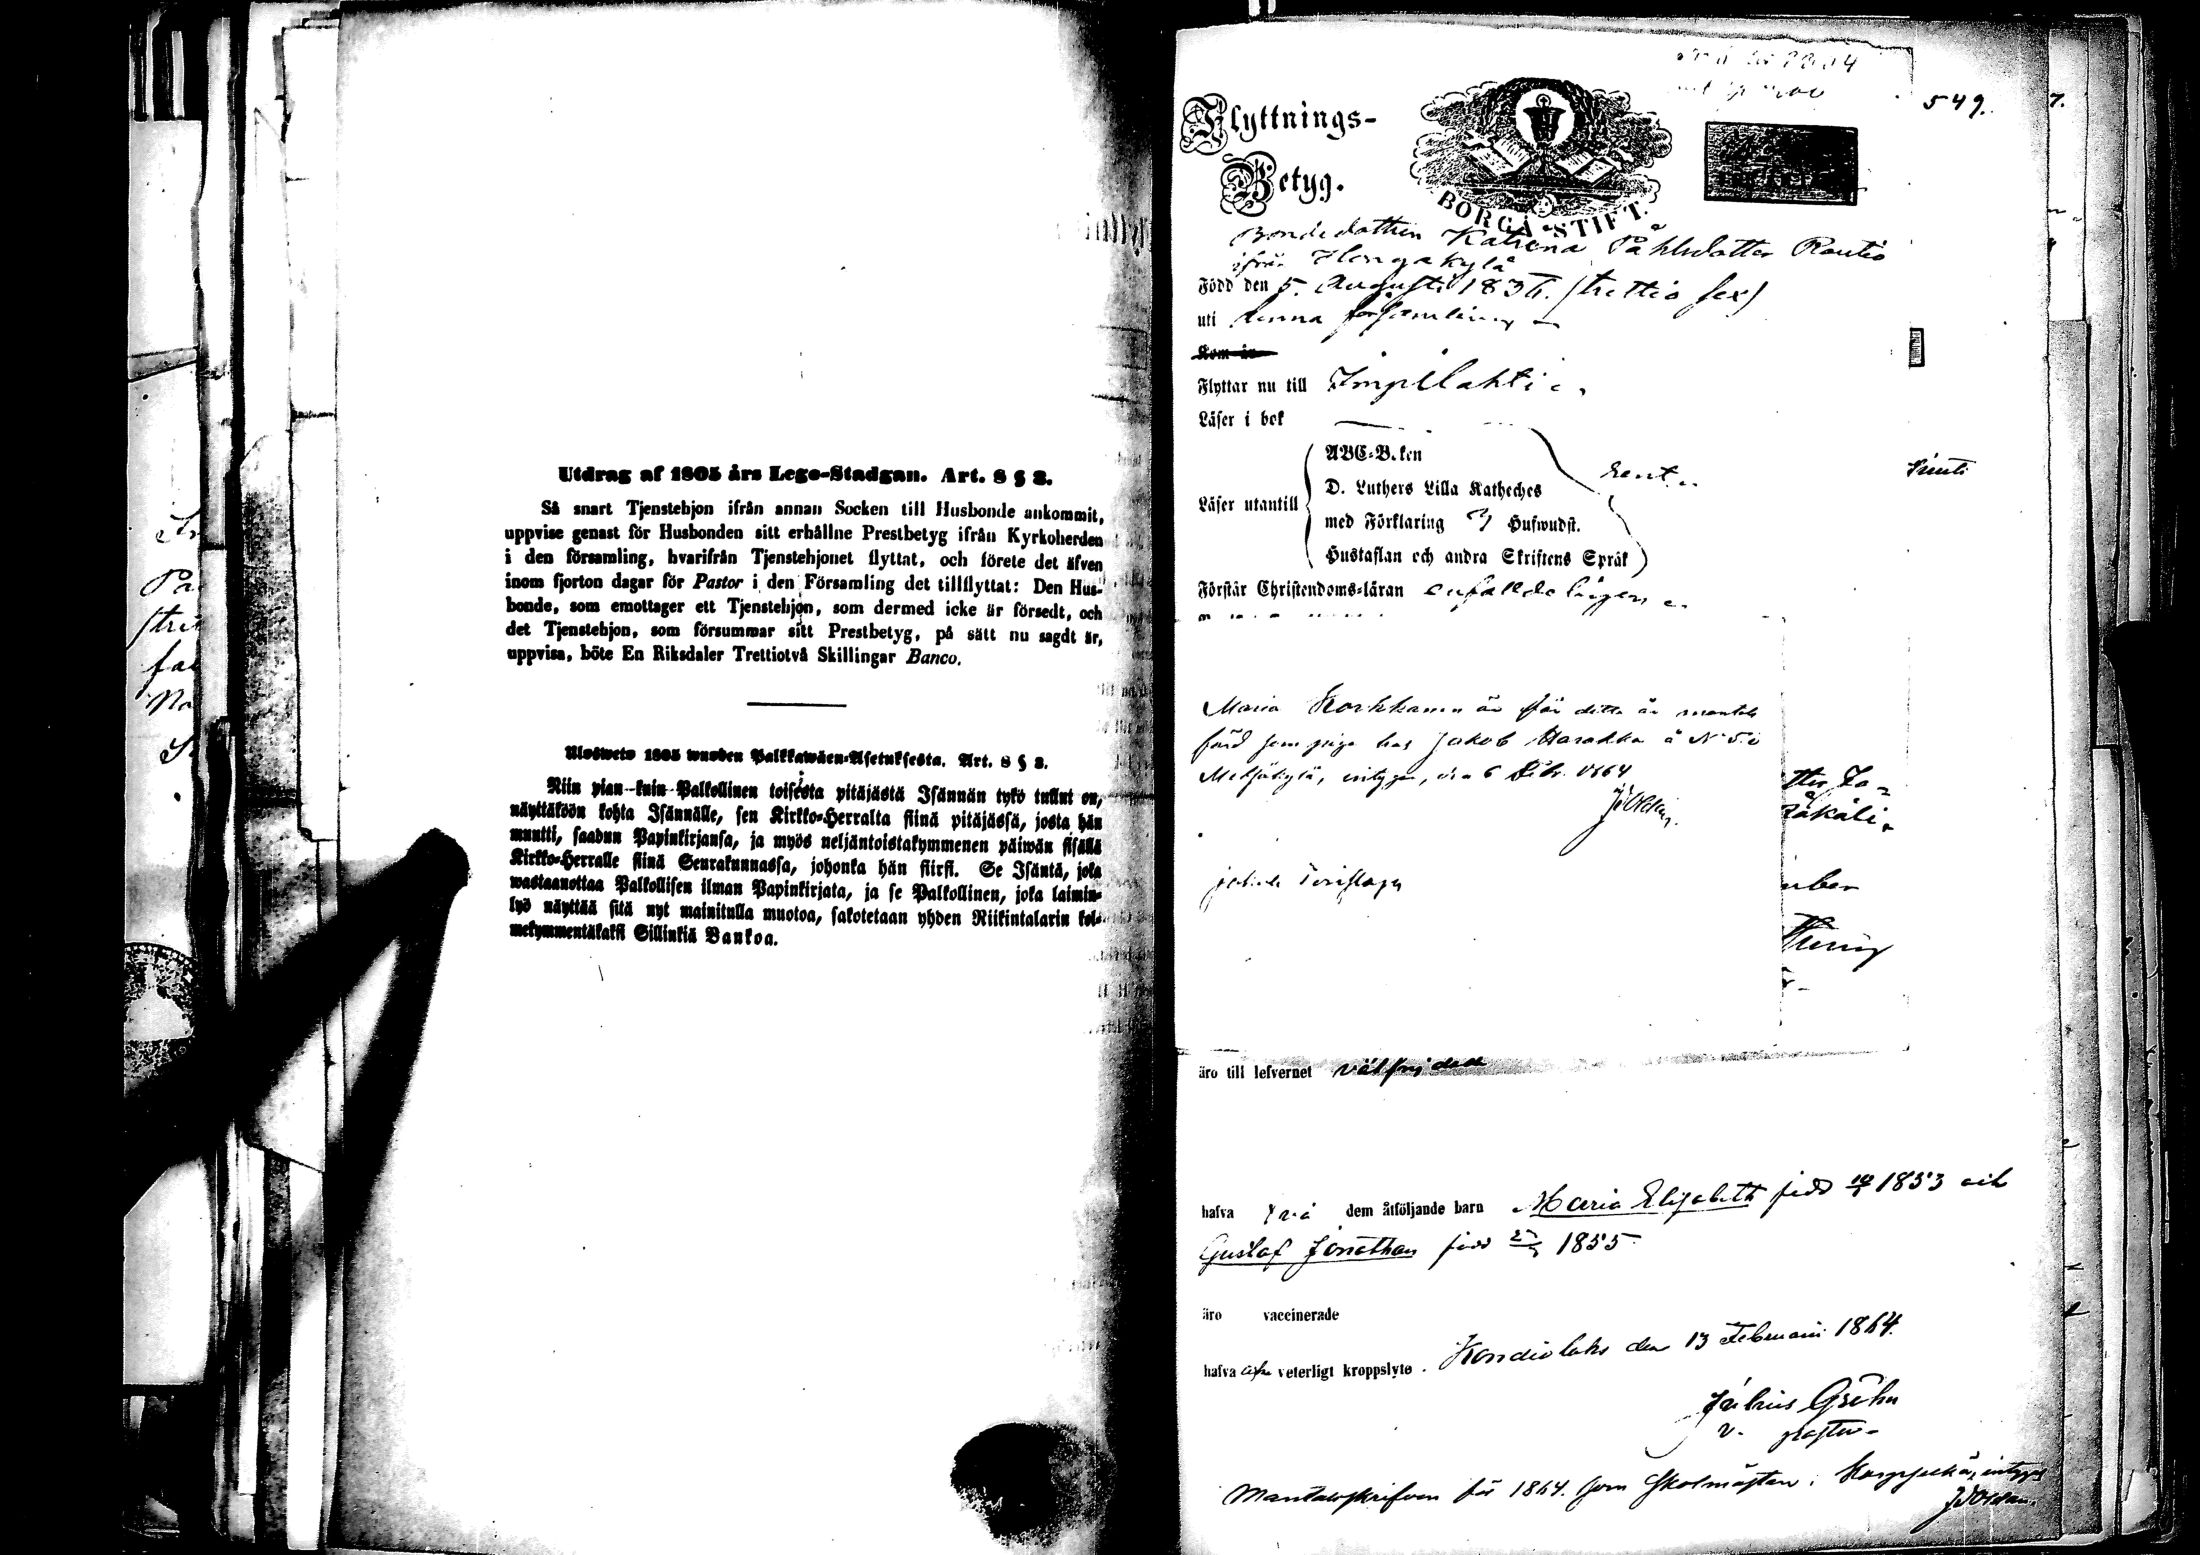 Utdrag af 1805 års Lego-Stadgan. Art. 8 § 8.
Så snart Tjenstehjon ifrån annan Socken till Husbonde ankommit,
uppvise genast för Husbonden sitt erhållne Prestbetyg ifrån Kyrkoherden
i den församling, hvarifrån Tjenstehjonet flyttat, och förete det äfven
inom fjorton dagar för Pastor i den Församling det tillflyttat: Den Hus-
bonde, som emottager ett Tjenstehjon, som dermed icke är försedt, och
det Tjenstehjon, som försummar sitt Prestbetyg, på sätt nu sagdt är,
uppvisa, böte En Riksdaler Trettiotvå Skillingar Banco.
Ulosweto 1805 wuoden Palkkawäen-Asetuksesta. Art. 8 § 8.
Niin pian kuin Palkollinen toisesta pitäjästä Isännän tykö tullut on,
näyttäköön kohta Isännälle, sen Kirkko-Herralta siinä pitäjässä, josta hän
muutti, saadun Papinkirjansa, ja myös neljäntoistakymmenen päiwän sisällä
Kirkko-Herralle siinä Seurakunnassa, johonka hän siirsi. Se Isäntä, joka
wastaanottaa Palkollisen ilman Papinkirjata, ja se Palkollinen, joka laimin-
lyö näyttää sitä nyt mainitulla muotoa, sakotetaan yhden Riikintalarin kol-
mekymmentäkaksi Sillinkiä Bankoa.
549.
7.
Flyttnings-
Betyg.
BORGÅ STIFT.
Bondedottren Katrena Påhlsdotter Rautio
ifrån Hongakylä
Född den 5. Augusti 1836. (trettio sex)
uti denna församling
Kom år
Flyttar nu till Impilahti
Läser i bok
ABC-Boken
D. Luthers Lilla Katheches
Läser utantill
med Förklaring Hufwudst.
Hustaflan och andra Skriftens Språk
rent
Förstår Christendoms-läran enfaldeligen
Maria Korhkanen är för detta år mantals
förd som piga hos Jakob Harakka å N 5 i
Metsäkylä, intygar, den 6 Febr. 1864
äro till lefvernet välfrejdade
hafva två dem åtföljande barn Maria Elisabeth född 1853 och
Gustaf Jonathan född 1855
äro vaccinerade
hafva veterligt kroppslyte. Kondiolaks den 13 Februarii 1864.
Julius Gröhn
v. pastor
Mantalsskrifven för 1864. som Skolmästare i intygar